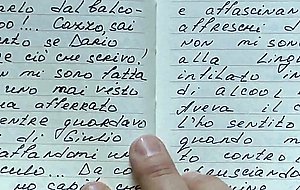 arlo dal balco-
o!... Cazzo, sai
nto se Dario
e ciò che scrivo!
n mi sono fatta
uno mai vesto
ha afferrato
entre guardavo
di Giulio
affandomi un
culo... Da co
no capo
e affascinan
affreschi d
non mi son
alla lingu
intilato in
di alcool
Aveva il c
l'ho sentito
quando m
to contro
schiusciando